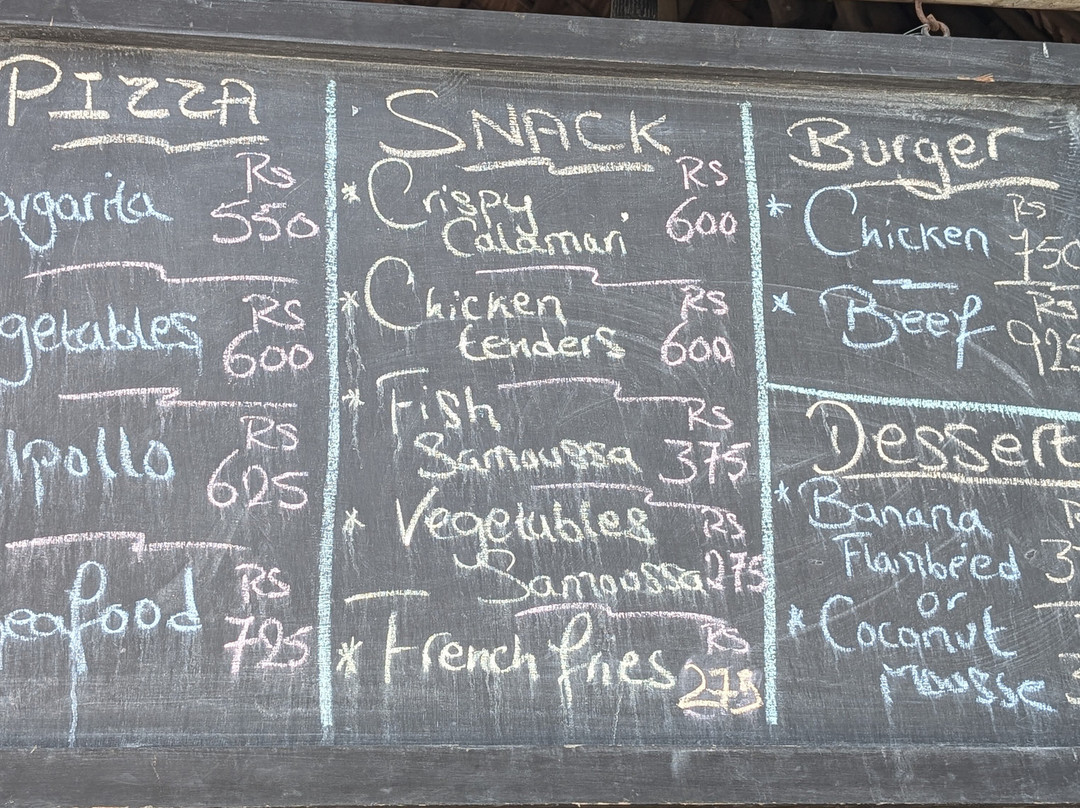 PIZZA
argarita Rs 550
getables Rs 600
pollo Rs 625
eafood Rs 725
SNACK
* Crispy Calamari Rs 600
* Chicken tenders Rs 600
* Fish Samoussa Rs 375
* Vegetables Samoussa Rs 275
* French fries Rs 275
Burger
* Chicken Rs 750
* Beef Rs 925
Dessert
* Banana
Flambéed
or
* Coconut
Mousse